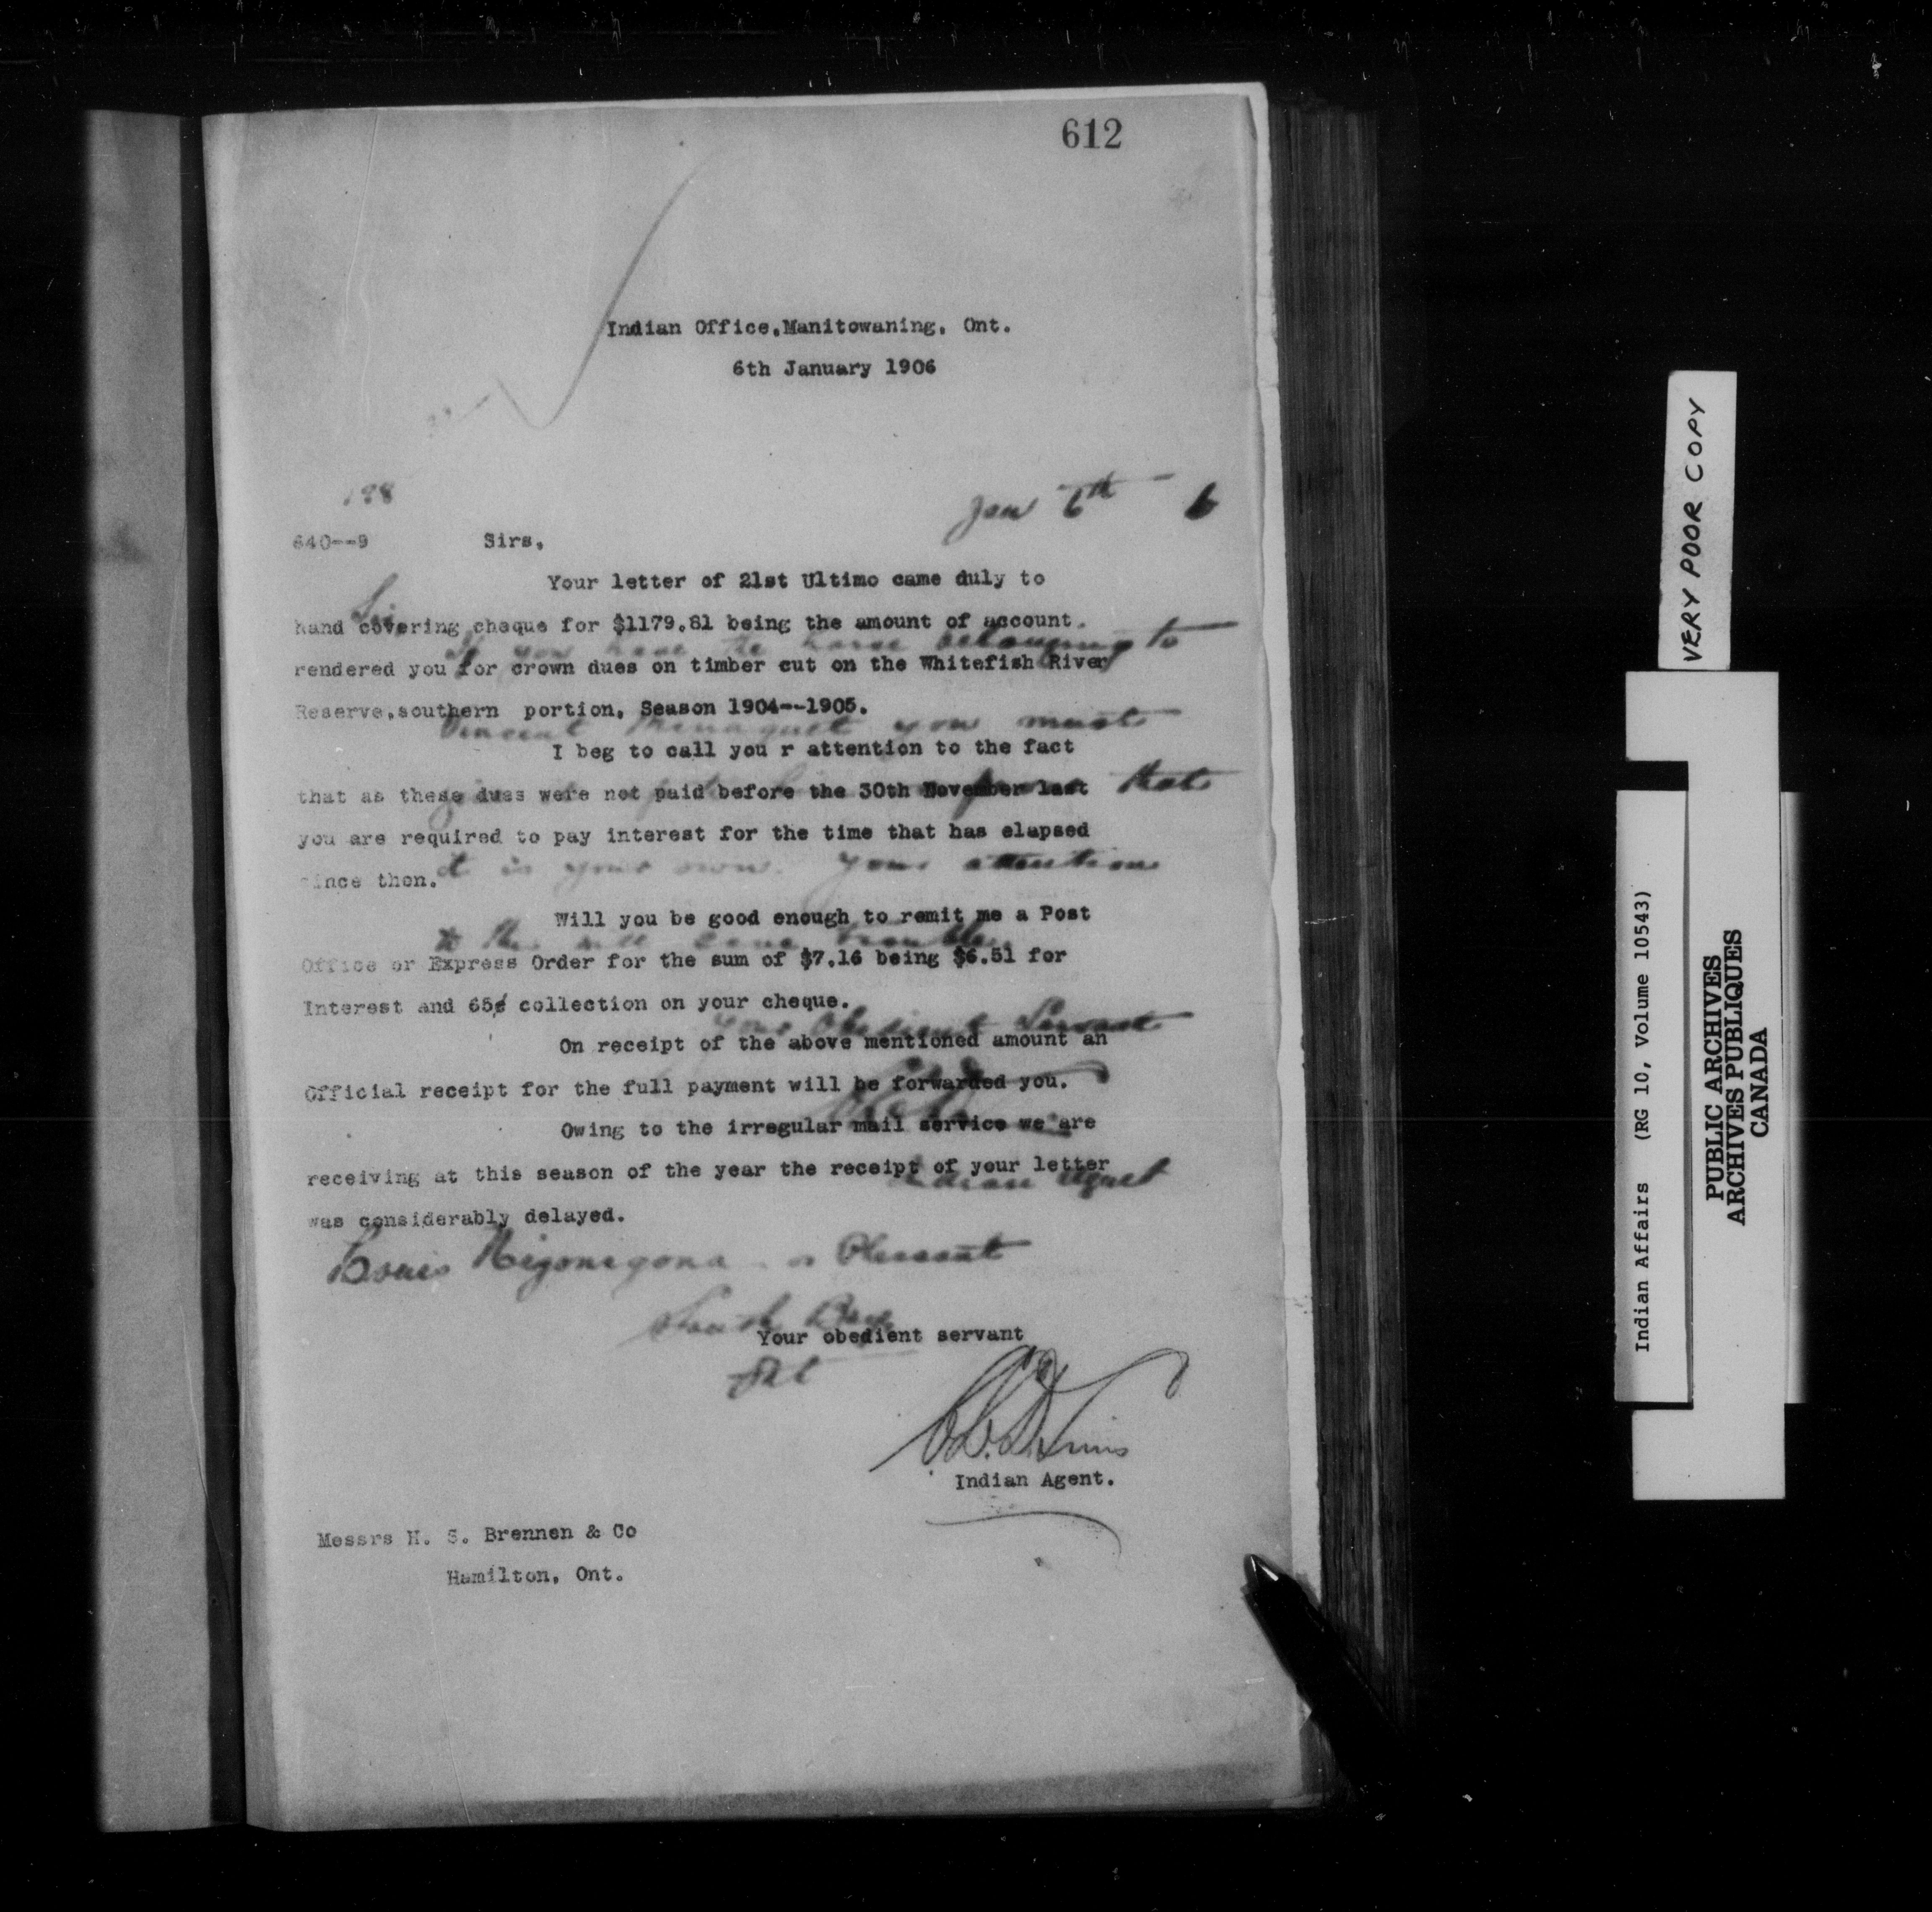 612
Indian Office,Manitowaning, Ont.
6th January 1906
198
Jan 6th 6
640--9 Sirs,
Your letter of 21st Ultimo came duly to
Sir
hand covering cheque for $1179.81 being the amount of account.
If you have the horse belonging to
rendered you for crown dues on timber cut on the Whitefish River
Reserve,southern portion, Season 1904--1905.
Vincent you must
I beg to call you r attention to the fact
that as these dues were not paid before the 30th November last
that
you are required to pay interest for the time that has elapsed
it is your own. Your attention
since then.
Will you be good enough to remit me a Post
to this will save trouble
Office or Express Order for the sum of $7.16 being $6.51 for
Interest and 65¢ collection on your cheque.
Your Obedient Servant
On receipt of the above mentioned amount an
Official receipt for the full payment will be forwarded you.
Owing to the irregular mail service we are
receiving at this season of the year the receipt of your letter
Indian Agent
was considerably delayed.
Louis or Pleasant
South Bay
Your obedient servant
Ont
Indian Agent.
Messrs H. S. Brennen & Co
Hamilton, Ont.
VERY POOR COPY
Indian Affairs (RG 10, Volume 10543)
PUBLIC ARCHIVES
ARCHIVES PUBLIQUES
CANADA